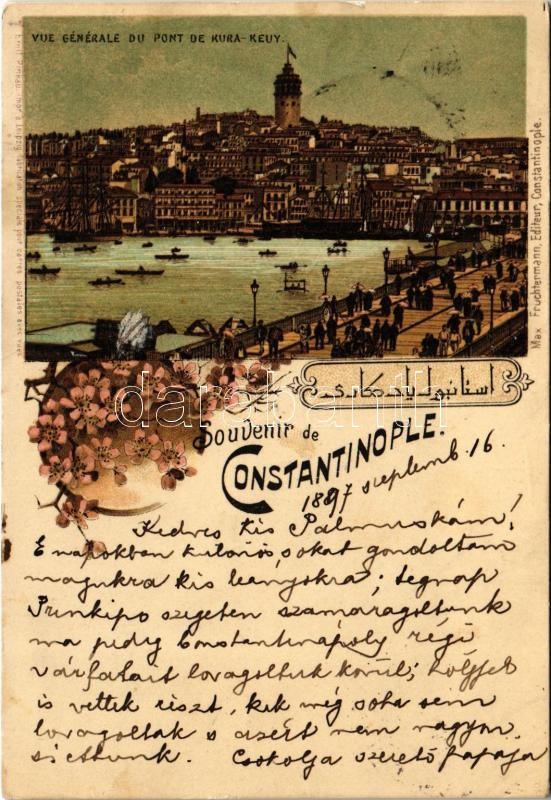 VUE GÉNÉRALE DU PONT DE KURA-KEUY.
Max Fruchtermann, Editeur, Constantinople.
darabanth
Souvenir de
CONSTANTINOPLE.
1897 septemb. 16.
Kedves kis Palmuskám!
E napokban kulönös sokat gondoltam
magukra kis leányokra; tegnap
Prinkipo szigeten szamaragoltunk
ma pedig Constantinápoly régi
várfalait lovagoltuk körül; hölgyek
is vettek részt, kik még soha sem
lovagoltak s azért nem nagyon
siettunk. Csokolja szerető papája